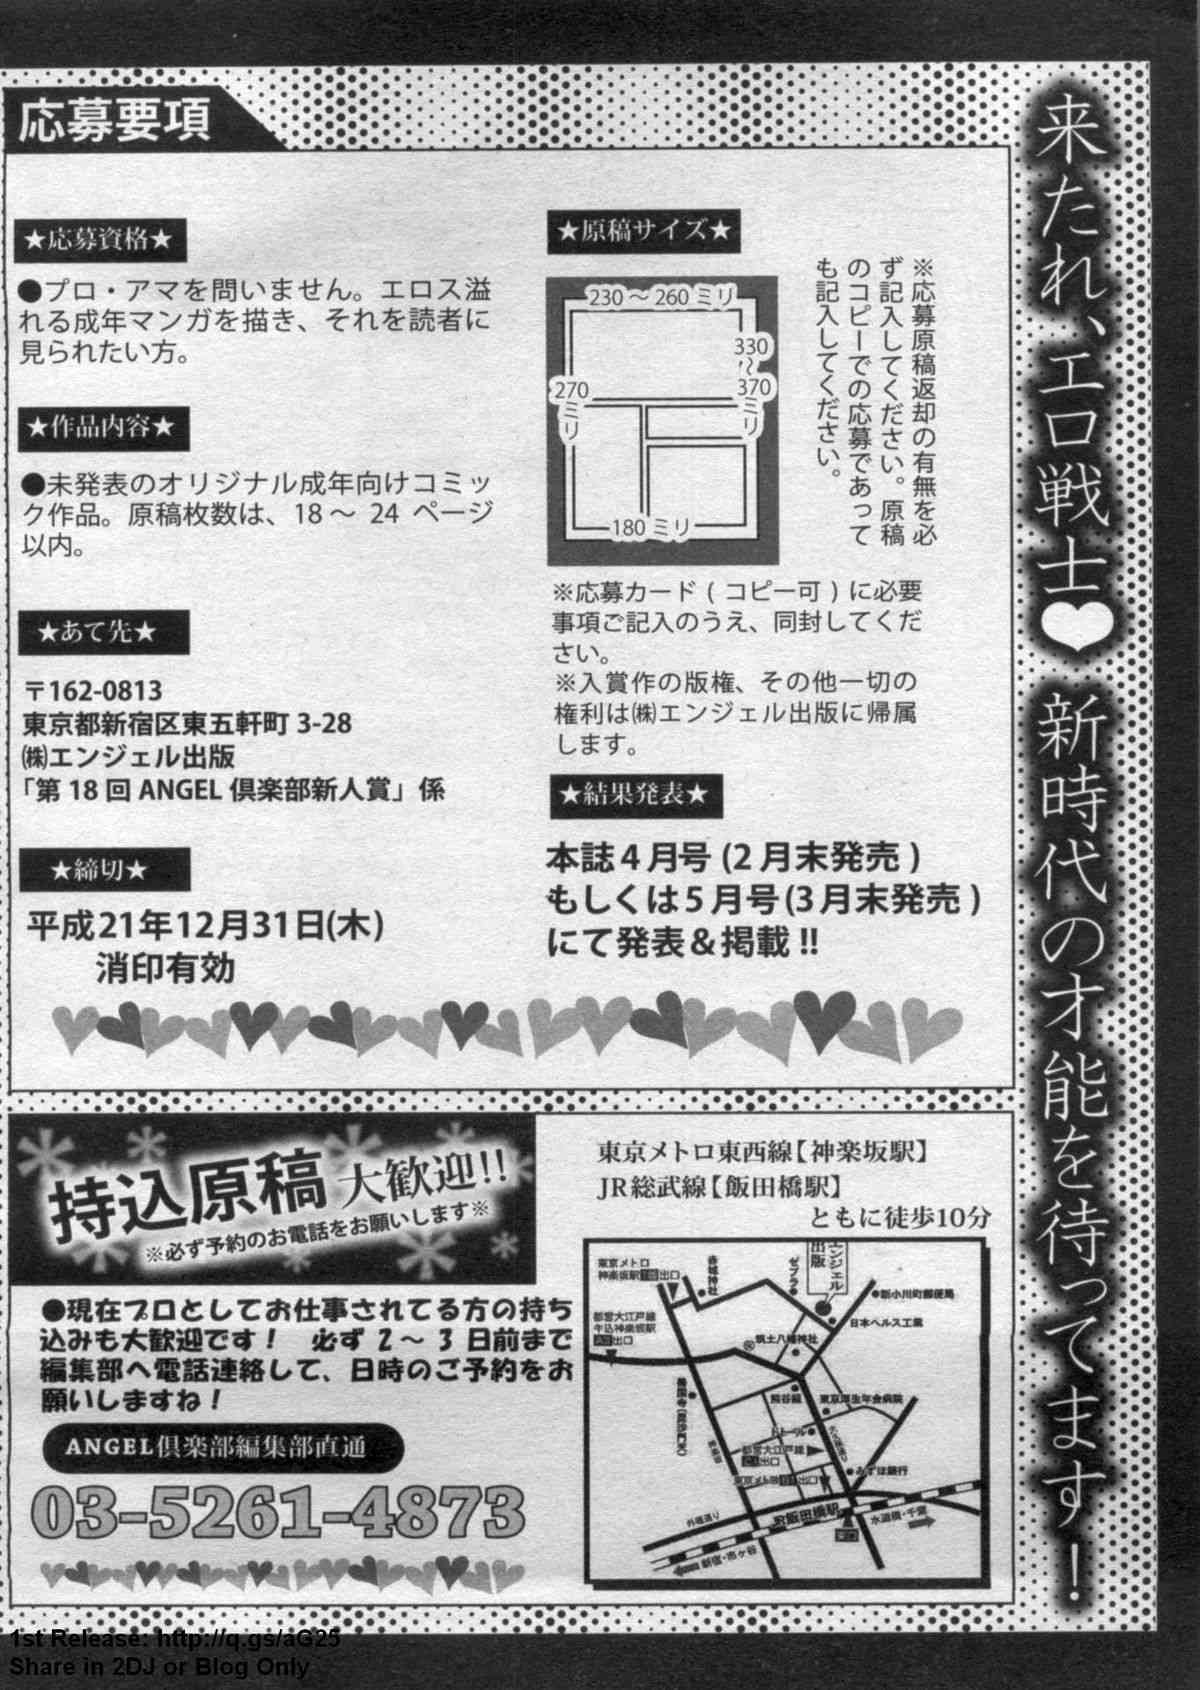 来たれ、エロ戦士♥新時代の才能を待ってます！
応募要項
★応募資格★
●プロ・アマを問いません。エロス溢
れる成年マンガを描き、それを読者に
見られたい方。
★作品内容★
●未発表のオリジナル成年向けコミッ
ク作品。原稿枚数は、18～24ページ
以内。
★あて先★
〒162-0813
東京都新宿区東五軒町 3-28
㈱エンジェル出版
「第 18 回 ANGEL 倶楽部新人賞」係
★締切★
平成21年12月31日(木)
消印有効
★原稿サイズ★
230～260ミリ
330～370ミリ
270ミリ
180ミリ
※応募原稿返却の有無を必
ず記入してください。原稿
のコピーでの応募であって
も記入してください。
※応募カード(コピー可)に必要
事項ご記入のうえ、同封してくだ
さい。
※入賞作の版権、その他一切の
権利は㈱エンジェル出版に帰属
します。
★結果発表★
本誌4月号(2月末発売)
もしくは5月号(3月末発売)
にて発表＆掲載!!
持込原稿 大歓迎!!
※必ず予約のお電話をお願いします※
●現在プロとしてお仕事されてる方の持ち
込みも大歓迎です！ 必ず2～3日前まで
編集部へ電話連絡して、日時のご予約をお
願いしますね！
ANGEL倶楽部編集部直通
03-5261-4873
東京メトロ東西線【神楽坂駅】
JR総武線【飯田橋駅】
ともに徒歩10分
東京メトロ
神楽坂駅1番出口
赤城神社
ゼブラ
エンジェル
出版
新小川町郵便局
日本ヘルス工業
都営大江戸線
牛込神楽坂駅
A3出口
筑土八幡神社
熊谷組
東京厚生年金病院
ドトール
都営大江戸線
C1出口
みずほ銀行
外堀通り
JR飯田橋駅
東口
水道橋・千葉
新宿・市ヶ谷
1st Release: http://q.gs/aG25
Share in 2DJ or Blog Only